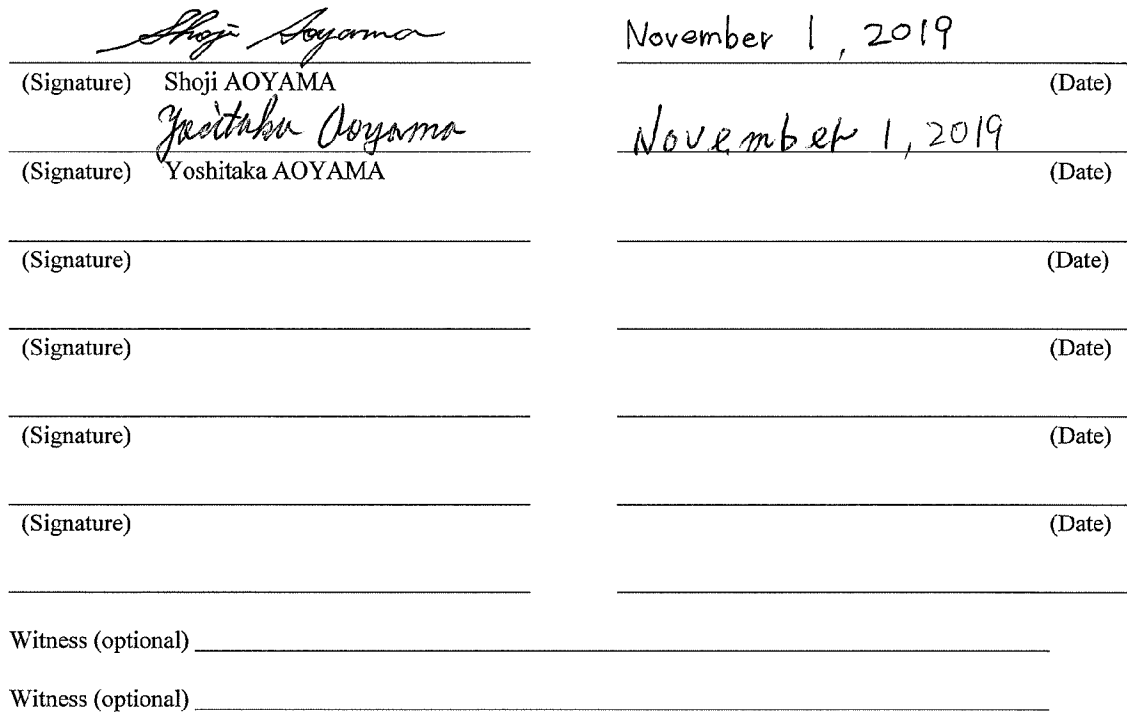 Shoji Aoyama November 1, 2019
(Signature) Shoji AOYAMA (Date)
Yositaka Aoyama November 1, 2019
(Signature) Yoshitaka AOYAMA (Date)
(Signature) (Date)
(Signature) (Date)
(Signature) (Date)
(Signature) (Date)
Witness (optional)
Witness (optional)